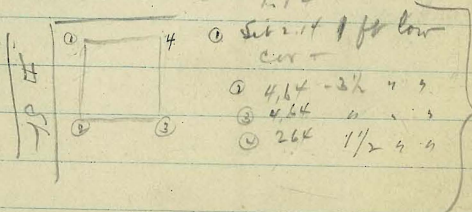 ① 4 ① Set 2.14 1 ft low
② ③
② 4,64 - 3½ " "
③ 4,64 " " "
④ 264 1 1/2 " "